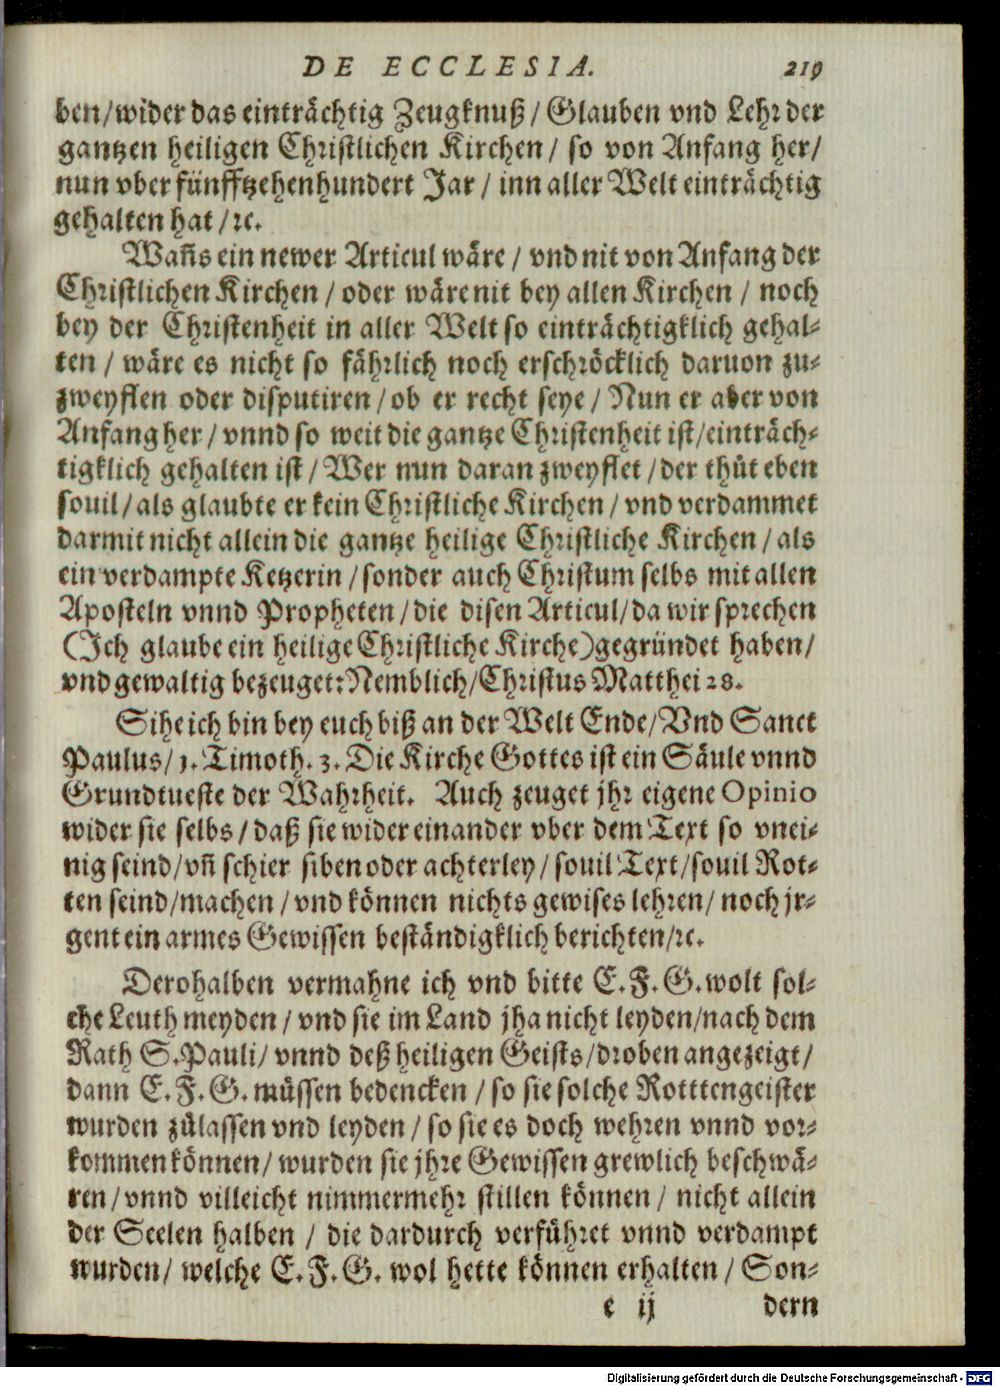 DE ECCLESIA. 219
ben/wider das einträchtig Zeugknuß/ Glauben vnd Lehr der
gantzen heiligen Christlichen Kirchen/ so von Anfang her/
nun vber fünfftzehenhundert Jar/ inn aller Welt einträchtig
gehalten hat/ꝛc.
Wañs ein newer Articul wäre/ vnd nit von Anfang der
Christlichen Kirchen/ oder wäre nit bey allen Kirchen/ noch
bey der Christenheit in aller Welt so einträchtigklich gehal-
ten/ wäre es nicht so fährlich noch erschröcklich daruon zu-
zweyflen oder disputiren/ ob er recht seye/ Nun er aber von
Anfang her/ vnnd so weit die gantze Christenheit ist/einträch-
tigklich gehalten ist/ Wer nun daran zweyflet/der thůt eben
souil/als glaubte er kein Christliche Kirchen/ vnd verdammet
darmit nicht allein die gantze heilige Christliche Kirchen/als
ein verdampte Ketzerin/sonder auch Christum selbs mit allen
Aposteln vnnd Propheten/die disen Articul/da wir sprechen
(Ich glaube ein heilige Christliche Kirche)gegründet haben/
vnd gewaltig bezeuget: Nemblich/Christus Matthei 28.
Sihe ich bin bey euch biß an der Welt Ende/Vnd Sanct
Paulus/1. Timoth. 3. Die Kirche Gottes ist ein Säule vnnd
Grundtueste der Wahrheit. Auch zeuget jhr eigene Opinio
wider sie selbs/ daß sie wider einander vber dem Text so vnei-
nig seind/vñ schier siben oder achterley/ souil Text/souil Rot-
ten seind/machen/ vnd können nichts gewises lehren/ noch jr-
gent ein armes Gewissen beständigklich berichten/ꝛc.
Derohalben vermahne ich vnd bitte E. F. G. wolt sol-
che Leuth meyden/ vnd sie im Land jha nicht leyden/nach dem
Rath S. Pauli/ vnnd deß heiligen Geists/droben angezeigt/
dann E. F. G. müssen bedencken/ so sie solche Rotttengeister
wurden zůlassen vnd leyden/ so sie es doch wehren vnnd vor-
kommen können/ wurden sie jhre Gewissen grewlich beschwä-
ren/ vnnd villeicht nimmermehr stillen können/ nicht allein
der Seelen halben/ die dardurch verführet vnnd verdampt
wurden/ welche E. F. G. wol hette können erhalten/ Son-
e ij dern
Digitalisierung gefördert durch die Deutsche Forschungsgemeinschaft - DFG